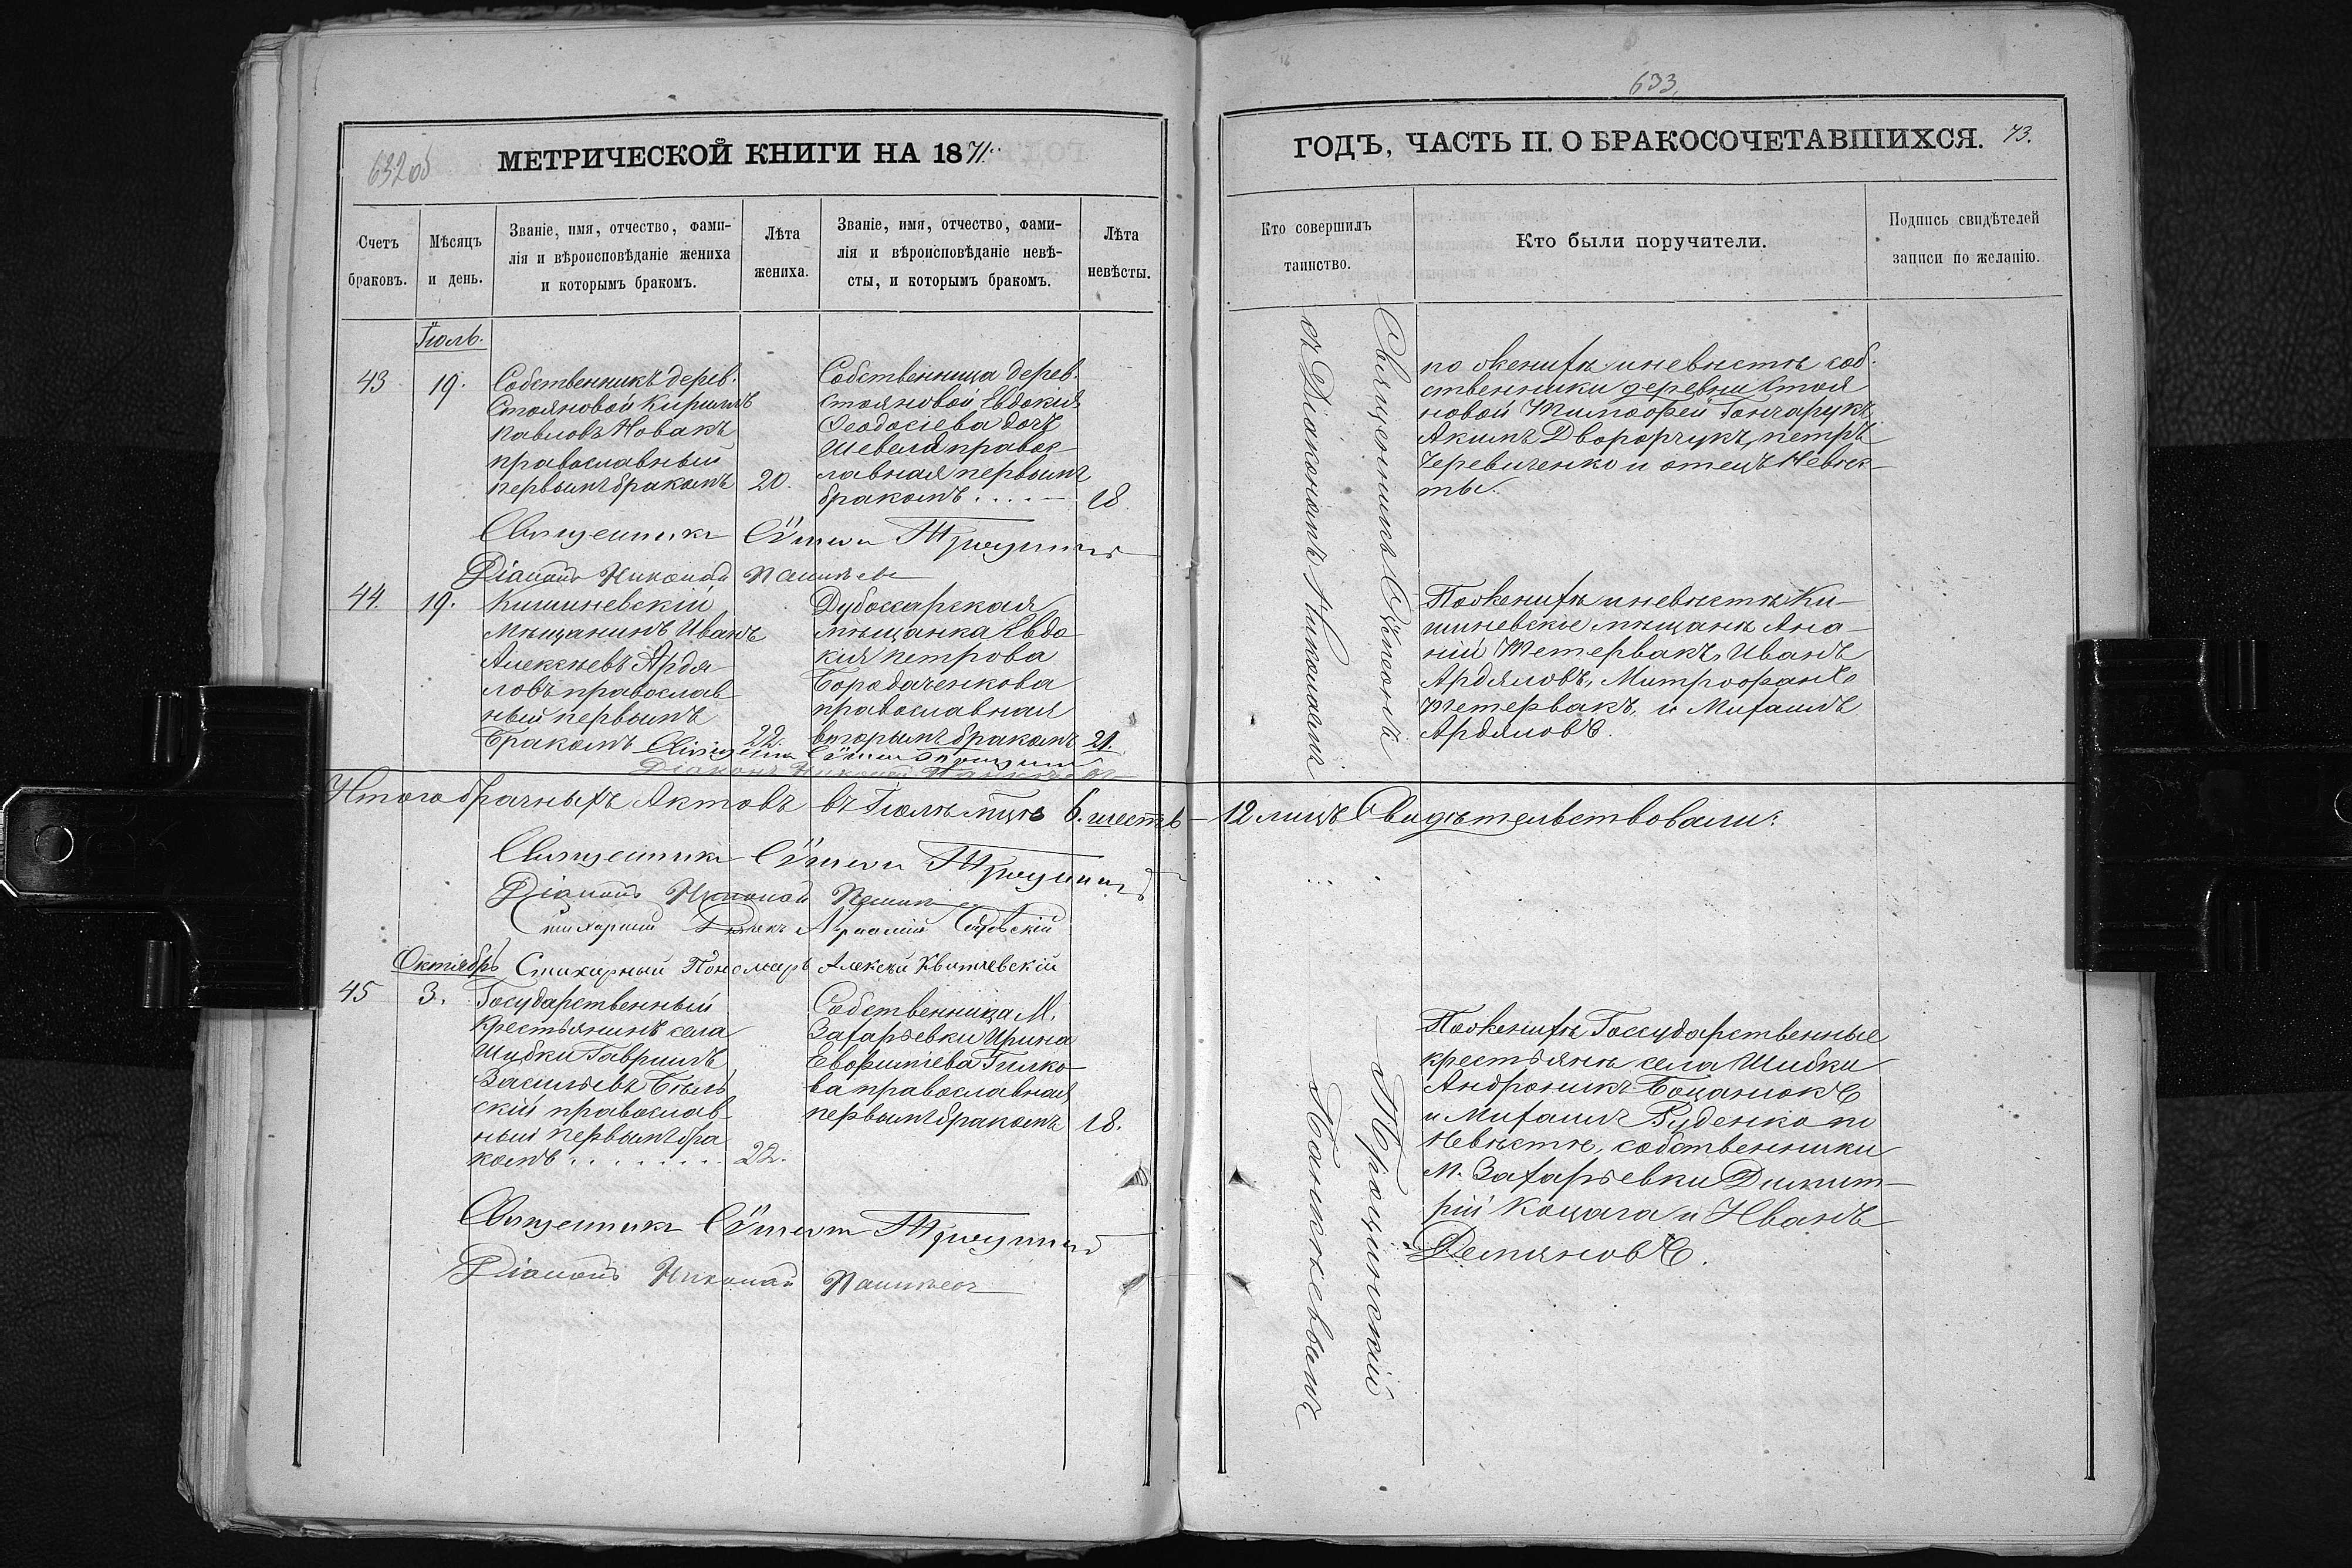 632об
МЕТРИЧЕСКОЙ КНИГИ НА 1871.
Счетъ браковъ.
Мѣсяцъ и день.
Званіе, имя, отчество, фами-
лія и вѣроисповѣданіе жениха
и которымъ бракомъ.
Лѣта жениха.
Званіе, имя, отчество, фами-
лія и вѣроисповѣданіе невѣ-
сты, и которымъ бракомъ.
Лѣта невѣсты.
Іюль.
43
19.
Собственникъ дерев.
Стояновой Кириллъ
Павловъ Новакъ
православный
первымъ бракомъ
20.
Собственница дерев.
Стояновой Евдокия
Ѳеодосіева дочь
Шевеля правос-
лавная первымъ
бракомъ.....
18.
Священникъ Сѵмеон
Діаконъ Николай
44.
19.
Кишиневскій
мѣщанинъ Иванъ
Алексѣевъ Ардя-
ловъ православ
ный первымъ
бракомъ
22.
Дубоссарская
мѣщанка Евдо-
кия Петрова
Бородаченкова
православная
вторымъ бракомъ
21.
Священникъ Сѵмеон
Діаконъ Николай
Итого брачныхъ актовъ въ Іюлѣ мцѣ 6. шесть – 12 лицъ Свидѣтельствовали:
Священникъ Сѵмеон
Діаконъ Николай
Стихарный
Октябрь
Стихарный Пономарь Алексѣй
45
3.
Государственный
крестьянинъ села
Шибки Гавриилъ
Васильевъ Бѣль
скій православ
ный первымъ бра
комъ.......
22.
Собственница М.
Захарьевки Ирина
Евфиміева Гилко-
ва православная
первымъ бракомъ
18.
Священникъ Сѵмеон
Діаконъ Николай
633.
ГОДЪ, ЧАСТЬ II. О БРАКОСОЧЕТАВШИХСЯ.
73.
Кто совершилъ
таинство.
Кто были поручители.
Подпись свидѣтелей
записи по желанію.
Священникъ Сѵмеонъ Трощинскій
съ Діакономъ Николаемъ
по женихѣ и невѣстѣ соб-
ственники деревни Стоя
новой Тимоофей Гончарукъ,
Акимъ Дворорчукъ, Петръ
Черевиченко и отецъ Невѣс-
ты.
По женихѣ и невѣстѣ Ки-
шиневскіе мѣщане Ана-
ній Тетервакъ, Иванъ
Ардяловъ, Митрофанъ
Тетервакъ, и Михаилъ
Ардяловъ.
По женихѣ Государственные
крестьяне села Шибки
Андроникъ Боцанюкъ
и Михаилъ Руденко по
Невѣстѣ, собственники
М. Захарьевки Димит-
рій Коцага и Иванъ
Демяновъ.